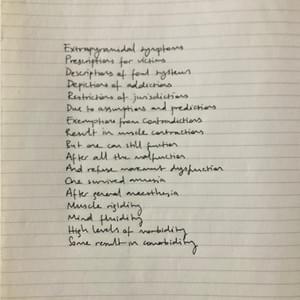 Extrapyramidal symptoms
Prescriptions for victims
Descriptions of foul systems
Depictions of addictions
Restrictions of jurisdictions
Due to assumptions and predictions
Exemptions from contradictions
Result in muscle contractions
But one can still function
After all the malfunction
And refuse movement dysfunction
One survived amnesia
After general anaesthesia
Muscle rigidity
Mind fluidity
High levels of morbidity
Some result in comorbidity